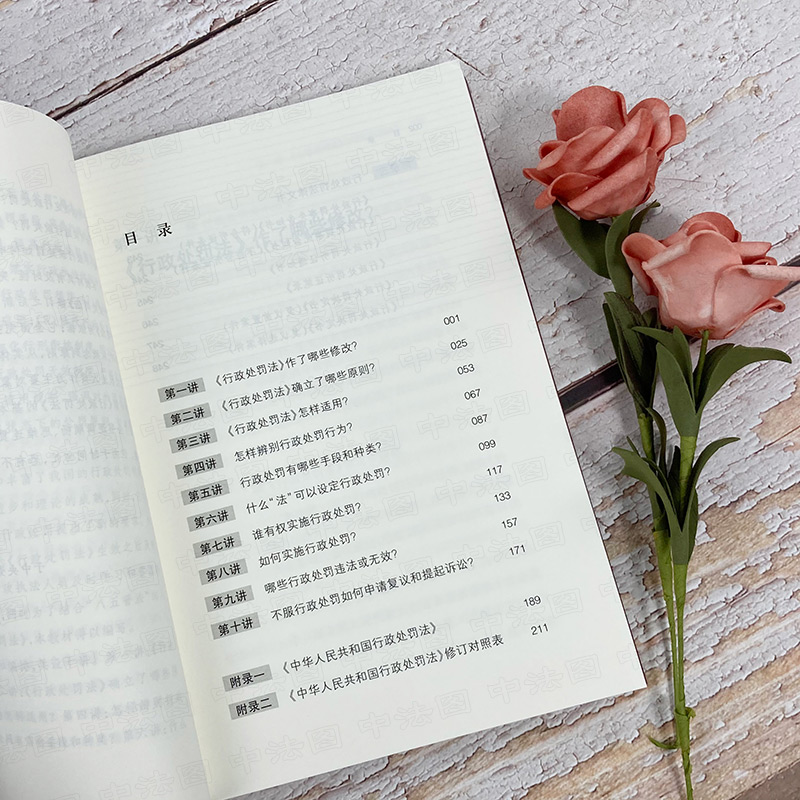 目 录
第一讲 《行政处罚法》作了哪些修改? 001
第二讲 《行政处罚法》确立了哪些原则? 025
第三讲 《行政处罚法》怎样适用? 053
第四讲 怎样辨别行政处罚行为? 067
第五讲 行政处罚有哪些手段和种类? 087
第六讲 什么“法”可以设定行政处罚? 099
第七讲 谁有权实施行政处罚? 117
第八讲 如何实施行政处罚? 133
第九讲 哪些行政处罚违法或无效? 157
第十讲 不服行政处罚如何申请复议和提起诉讼? 171
附录一 《中华人民共和国行政处罚法》 189
附录二 《中华人民共和国行政处罚法》修订对照表 211
中法图